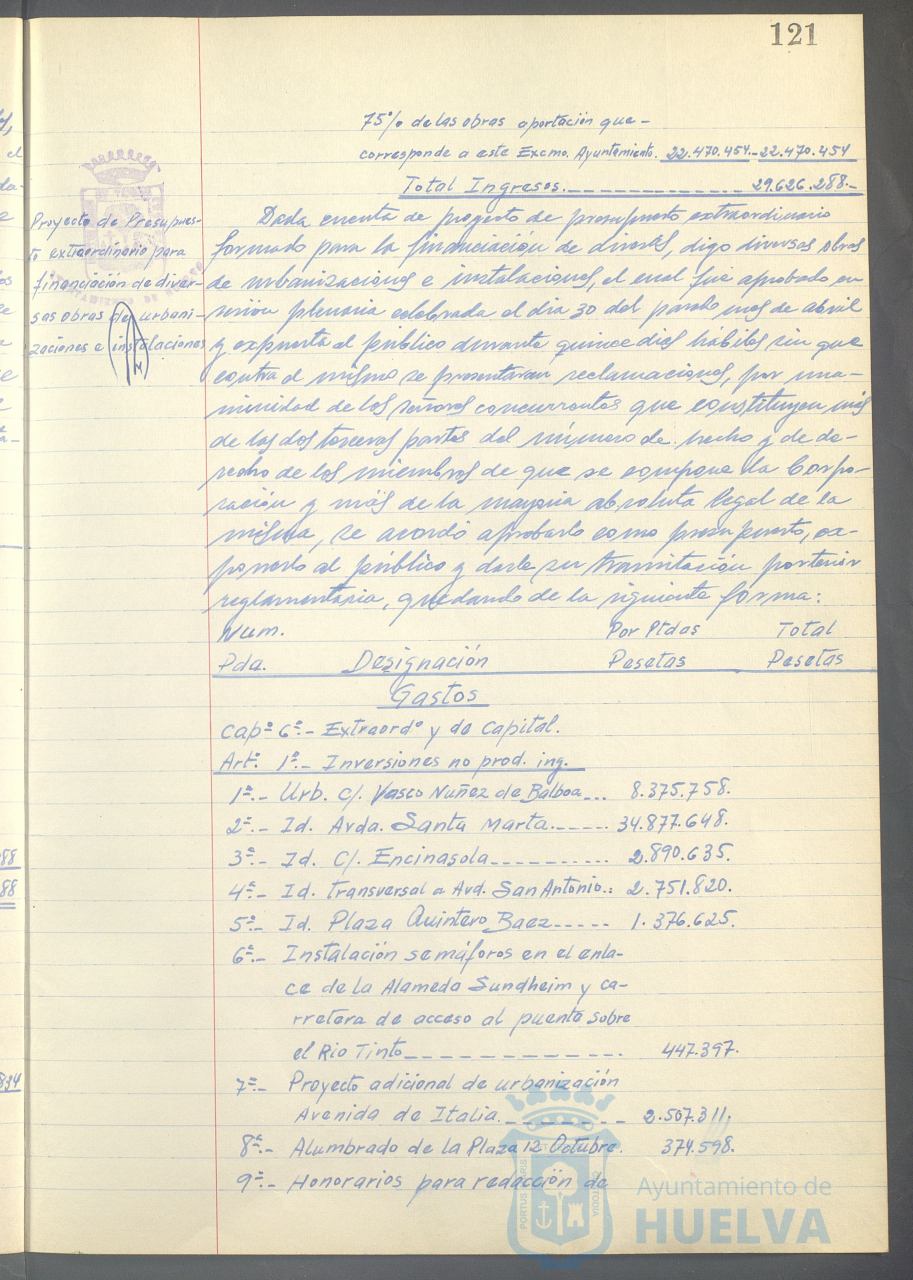 121
75% de las obras aportación que-
corresponde a este Excmo. Ayuntamiento. 22.470.454.- 22.470.454
Total Ingresos.------------ 29.626.288.-
Proyecto de Presupues-
to extraordinario para
financiación de diver-
sas obras de urbani-
zaciones e instalaciones
Dada cuenta de proyecto de presupuesto extraordinario
formado para la financiación de divers, digo diversas obras
de urbanizaciones e instalaciones, el cual fue aprobado en
sesión plenaria celebrada el dia 30 del pasado mes de abril
y expuesto al público durante quince dias hábiles sin que
contra el mismo se presentaran reclamaciones, por una-
nimidad de los señores concurrentes que constituyen más
de las dos terceras partes del número de hecho y de de-
recho de los miembros de que se compone la Corpo-
ración y más de la mayoria absoluta legal de la
misma, se acordó aprobarlo como presupuesto, ex-
ponerlo al público y darle su tramitación posterior
reglamentaria, quedando de la siguiente forma:
Num. Por Ptdas Total
Pda. Designación Pesetas Pesetas
Gastos
Capº 6º.- Extraordº y de capital.
Artº. 1º.- Inversiones no prod. ing.
1ª.- Urb. c/. Vasco Nuñez de Balboa... 8.375.758.
2ª.- Id. Avda. Santa Marta.----- 34.877.648.
3ª.- Id. C/. Encinasola---------- 2.890.635.
4ª.- Id. transversal a Avd. San Antonio.: 2.751.820.
5ª.- Id. Plaza Quintero Baez----- 1.376.625.
6ª.- Instalación semáforos en el enla-
ce de la Alameda Sundheim y ca-
rretera de acceso al puente sobre
el Rio Tinto------------ 447.397.
7ª.- Proyecto adicional de urbanización
Avenida de Italia.------- 2.507.311.
8ª.- Alumbrado de la Plaza 12 Octubre. 374.598.
9ª.- Honorarios para redacción de
Ayuntamiento de
HUELVA